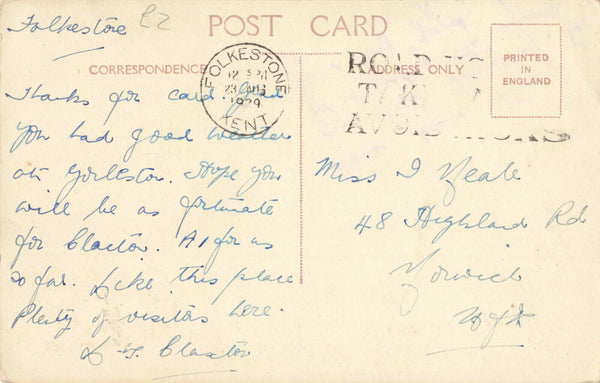 Folkestone
£2
POST CARD
CORRESPONDENCE
ADDRESS ONLY
PRINTED
IN
ENGLAND
FOLKESTONE
23 AUG
1929
KENT
ROAD
AVOID
Thanks for card. Glad
you had good weather
at Gorleston. Hope you
will be as fortunate
for Clacton. A1 for us
so far. Like this place
Plenty of visitors here.
Claxton
Miss I Neale
48 Highland Rd
Norwich